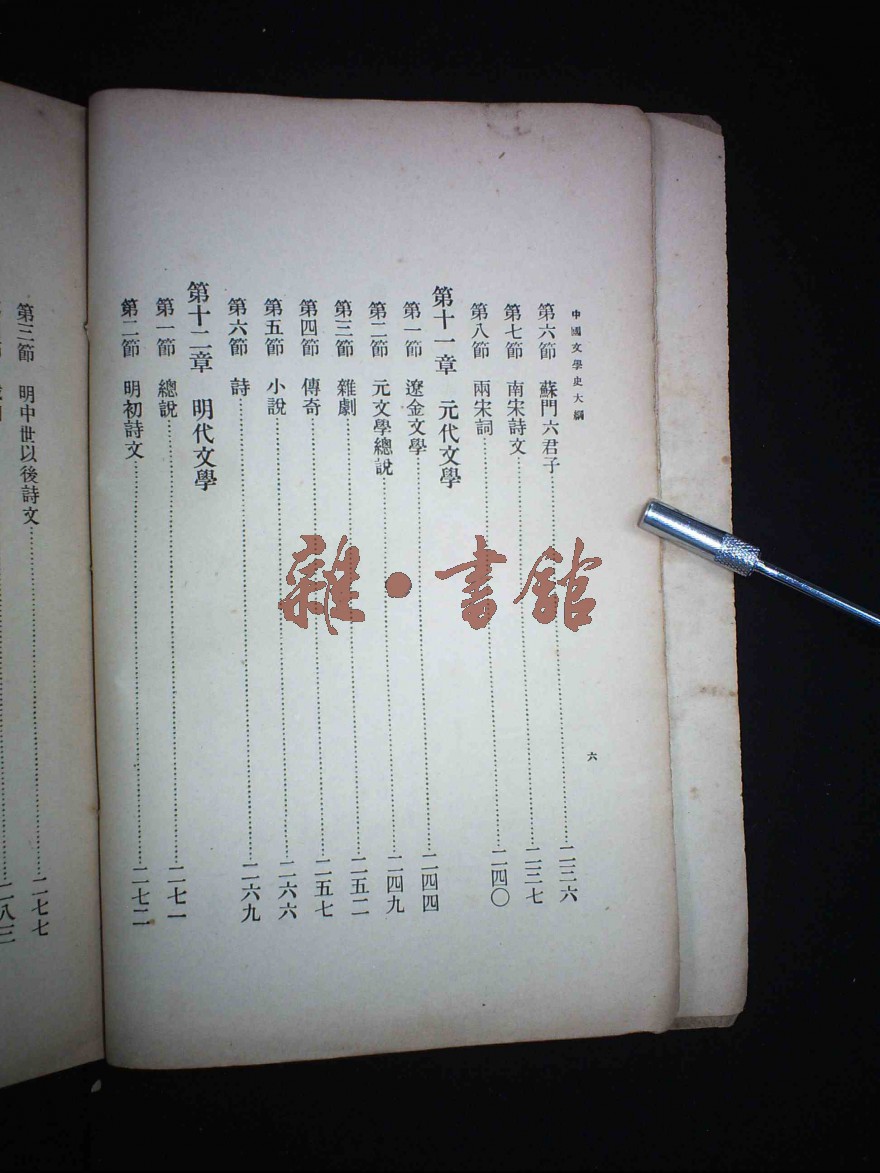 中國文學史大綱
六
第六節 蘇門六君子……二三六
第七節 南宋詩文……二三七
第八節 兩宋詞……二四〇
第十一章 元代文學
第一節 遼金文學……二四四
第二節 元文學總說……二四九
第三節 雜劇……二五二
第四節 傳奇……二五七
第五節 小說……二六六
第六節 詩……二六九
第十二章 明代文學
第一節 總說……二七一
第二節 明初詩文……二七二
第三節 明中世以後詩文……二七七
二八三
雜·書館